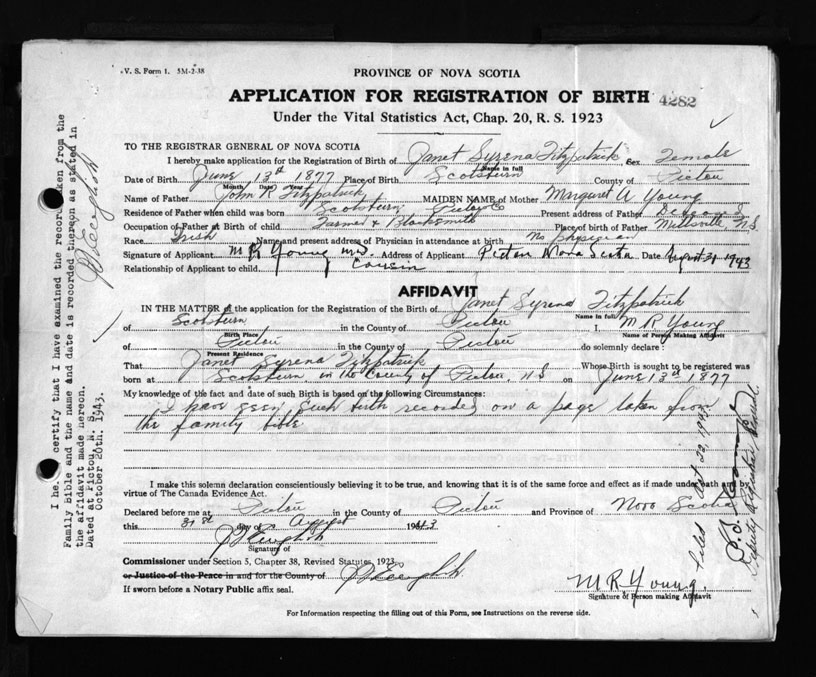 V. S. Form 1. 5M-2-38
PROVINCE OF NOVA SCOTIA
APPLICATION FOR REGISTRATION OF BIRTH 4282
Under the Vital Statistics Act, Chap. 20, R. S. 1923
TO THE REGISTRAR GENERAL OF NOVA SCOTIA
I hereby make application for the Registration of Birth of Janet Syrena Fitzpatrick Sex Female
Name in full
Date of Birth June 13th 1877 Place of Birth Scotsburn County of Pictou
Month Date Year
Name of Father John R Fitzpatrick MAIDEN NAME of Mother Margaret A Young
Residence of Father when child was born Scotsburn Pictou Co Present address of Father
Occupation of Father at Birth of child Farmer & Blacksmith Place of birth of Father Millsville, N.S.
Race Irish Name and present address of Physician in attendance at birth No physician
Signature of Applicant M R Young Address of Applicant Pictou Nova Scotia Date August 31 1943
Relationship of Applicant to child Cousin
AFFIDAVIT
IN THE MATTER of the application for the Registration of the Birth of Janet Syrena Fitzpatrick
Name in full
of Scotsburn in the County of Pictou I, M R Young
Birth Place Name of Person Making Affidavit
of Pictou in the County of Pictou do solemnly declare:
Present Residence
That Janet Syrena Fitzpatrick Whose Birth is sought to be registered was
born at Scotsburn in the County of Pictou, N S on June 13th 1877
My knowledge of the fact and date of such Birth is based on the following Circumstances:
I have seen such birth recorded on a page taken from
the family bible
I make this solemn declaration conscientiously believing it to be true, and knowing that it is of the same force and effect as if made under oath and by
virtue of The Canada Evidence Act.
Declared before me at Pictou in the County of Pictou and Province of Nova Scotia
this 31st day of August 1943
Signature of
Commissioner under Section 5, Chapter 38, Revised Statutes, 1923
or Justice of the Peace in and for the County of
If sworn before a Notary Public affix seal.
M R Young.
Signature of Person making Affidavit
For Information respecting the filling out of this Form, see Instructions on the reverse side.
I hereby certify that I have examined the record taken from the
Family Bible and the name and date is recorded thereon as stated in
the affidavit made hereon.
Dated at Pictou, N. S.
October 20th. 1943.
Filed Oct 22, 1943
Deputy Registrar General.